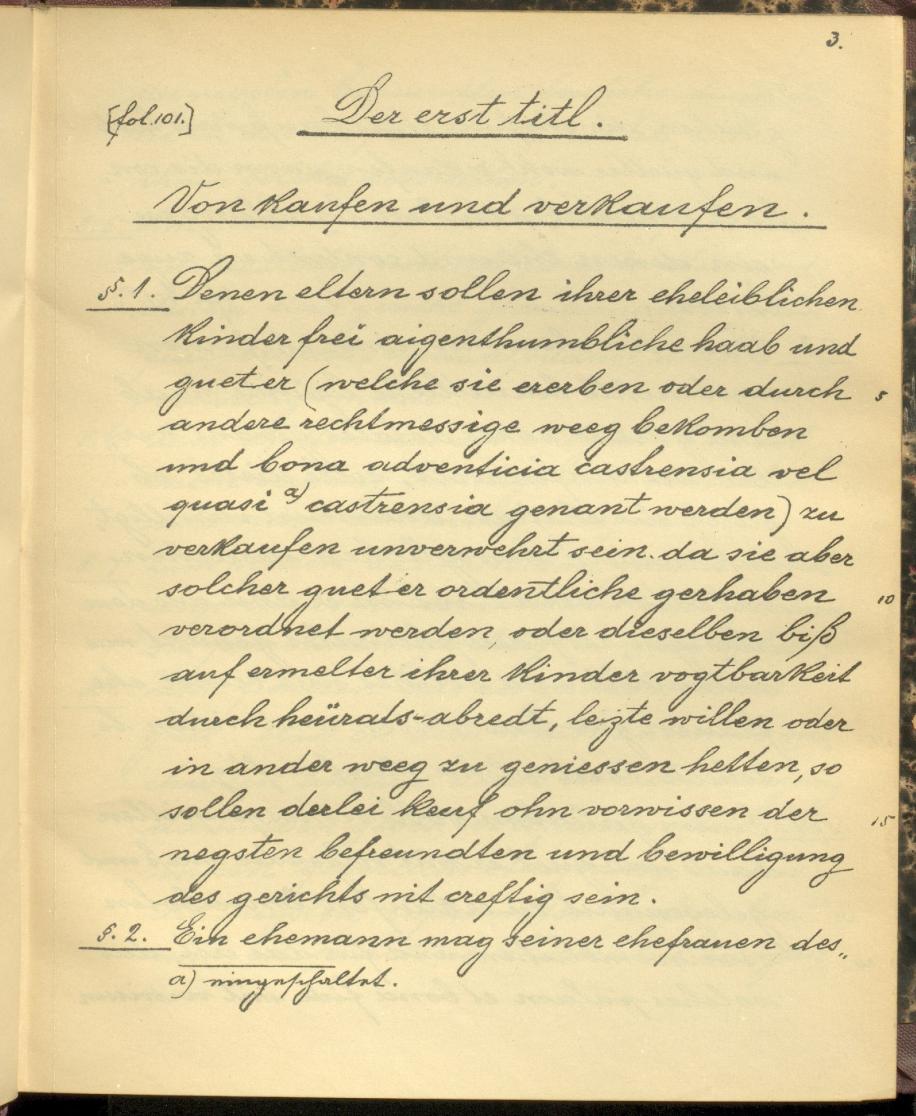 3.
[fol. 101.]
Der erst titl.
Von kaufen und verkaufen.
§. 1. Denen eltern sollen ihrer eheleiblichen
kinder frei aigenthumbliche haab und
gueter (welche sie ererben oder durch 5
andere rechtmessige weeg bekomben
und bona adventicia castrensia vel
quasi a) castrensia genant werden) zu
verkaufen unverwehrt sein. da sie aber
solcher gueter ordentliche gerhaben 10
verordnet werden, oder dieselben biß
auf ermelter ihrer kinder vogtbarkeit
durch heürats-abredt, lezte willen oder
in ander weeg zu geniessen hetten, so
sollen derlei keuf ohn vorwissen der 15
negsten befreundten und bewilligung
des gerichts nit creftig sein.
§. 2. Ein ehemann mag seiner ehefrauen des„
a) eingeschaltet.